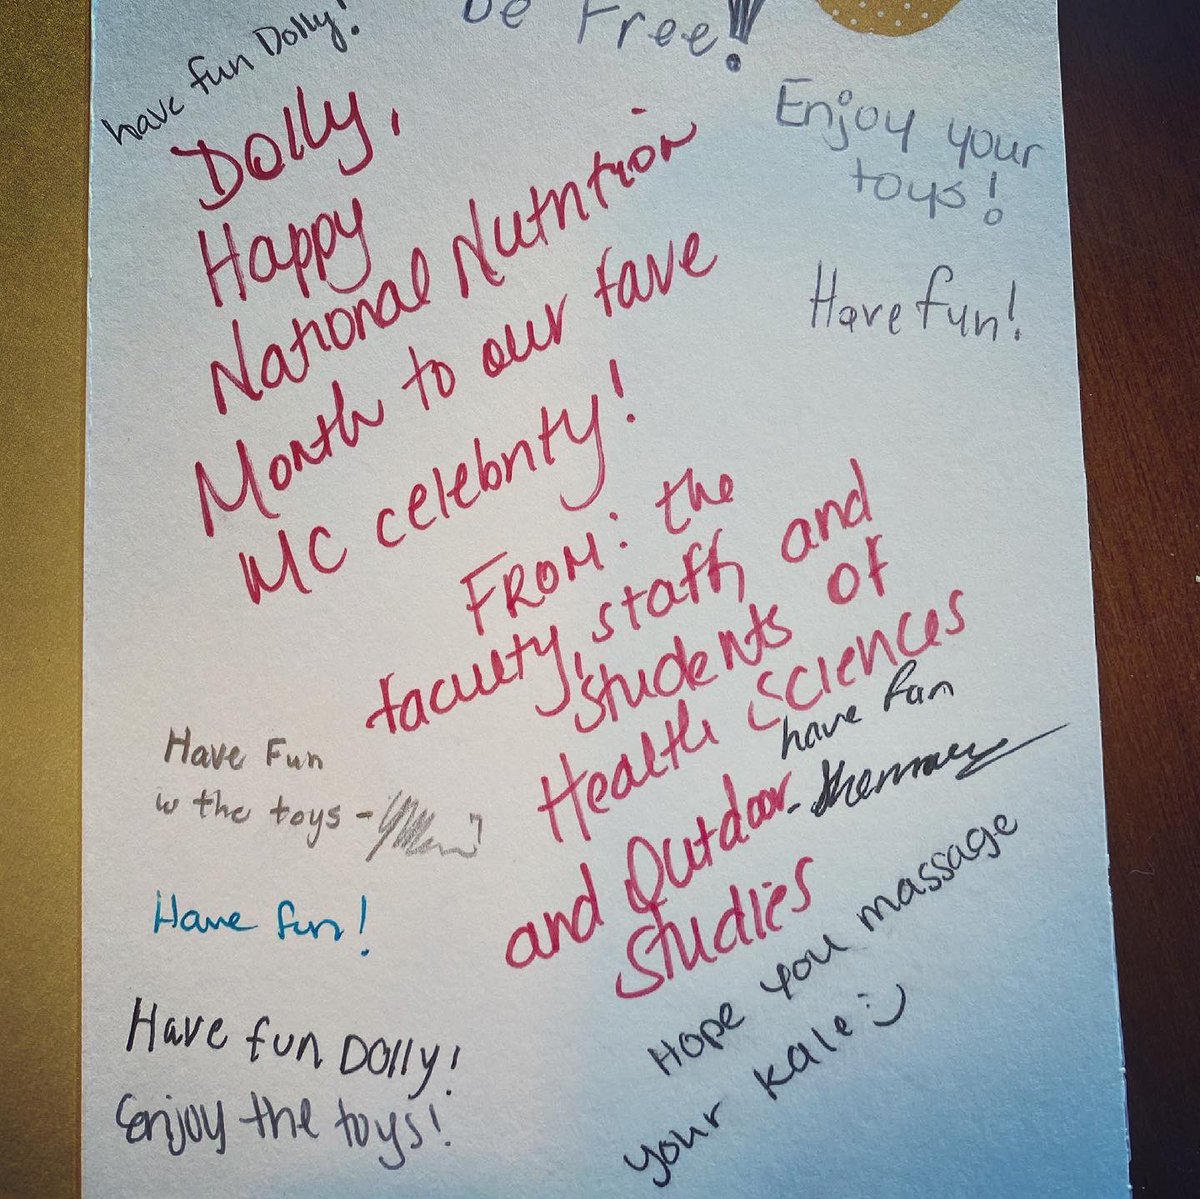 be Free!
have fun Dolly!
Enjoy your
toys!
Have fun!
Dolly,
Happy
National Nutrition
Month to our fave
MC celebrity!
FROM: the
faculty, staff, and
students of
Health Sciences
and Outdoor
Studies
have fun
Have Fun
w the toys -
Have fun!
Have fun Dolly!
Enjoy the toys!
Hope you massage
your kale :)